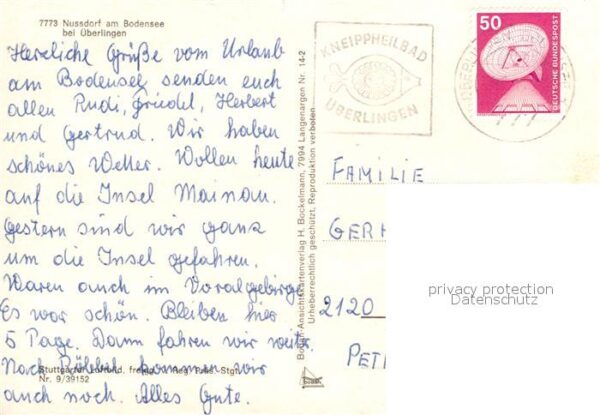 7773 Nussdorf am Bodensee
bei Überlingen
Herzliche Grüße vom Urlaub
am Bodensee senden euch
allen Rudi, Friedel, Herbert
und Gertrud. Wir haben
schönes Wetter. Wollen heute
auf die Insel Mainau.
Gestern sind wir ganz
um die Insel gefahren.
Waren auch im Voralgebirge
Es war schön. Bleiben hier
5 Tage. Dann fahren wir weiter.
Nach kommen wir
auch noch. Alles Gute.
Stuttgarter Luftbild, freigg. Reg. Präs. Stgt.
Nr. 9/39152
Ansichtskartenverlag H. Bockelmann, 7994 Langenargen Nr. 14-2
Urheberrechtlich geschützt, Reproduktion verboten
KNEIPPHEILBAD
ÜBERLINGEN
50
DEUTSCHE BUNDESPOST
777
FAMILIE
GERH
2120
privacy protection
Datenschutz